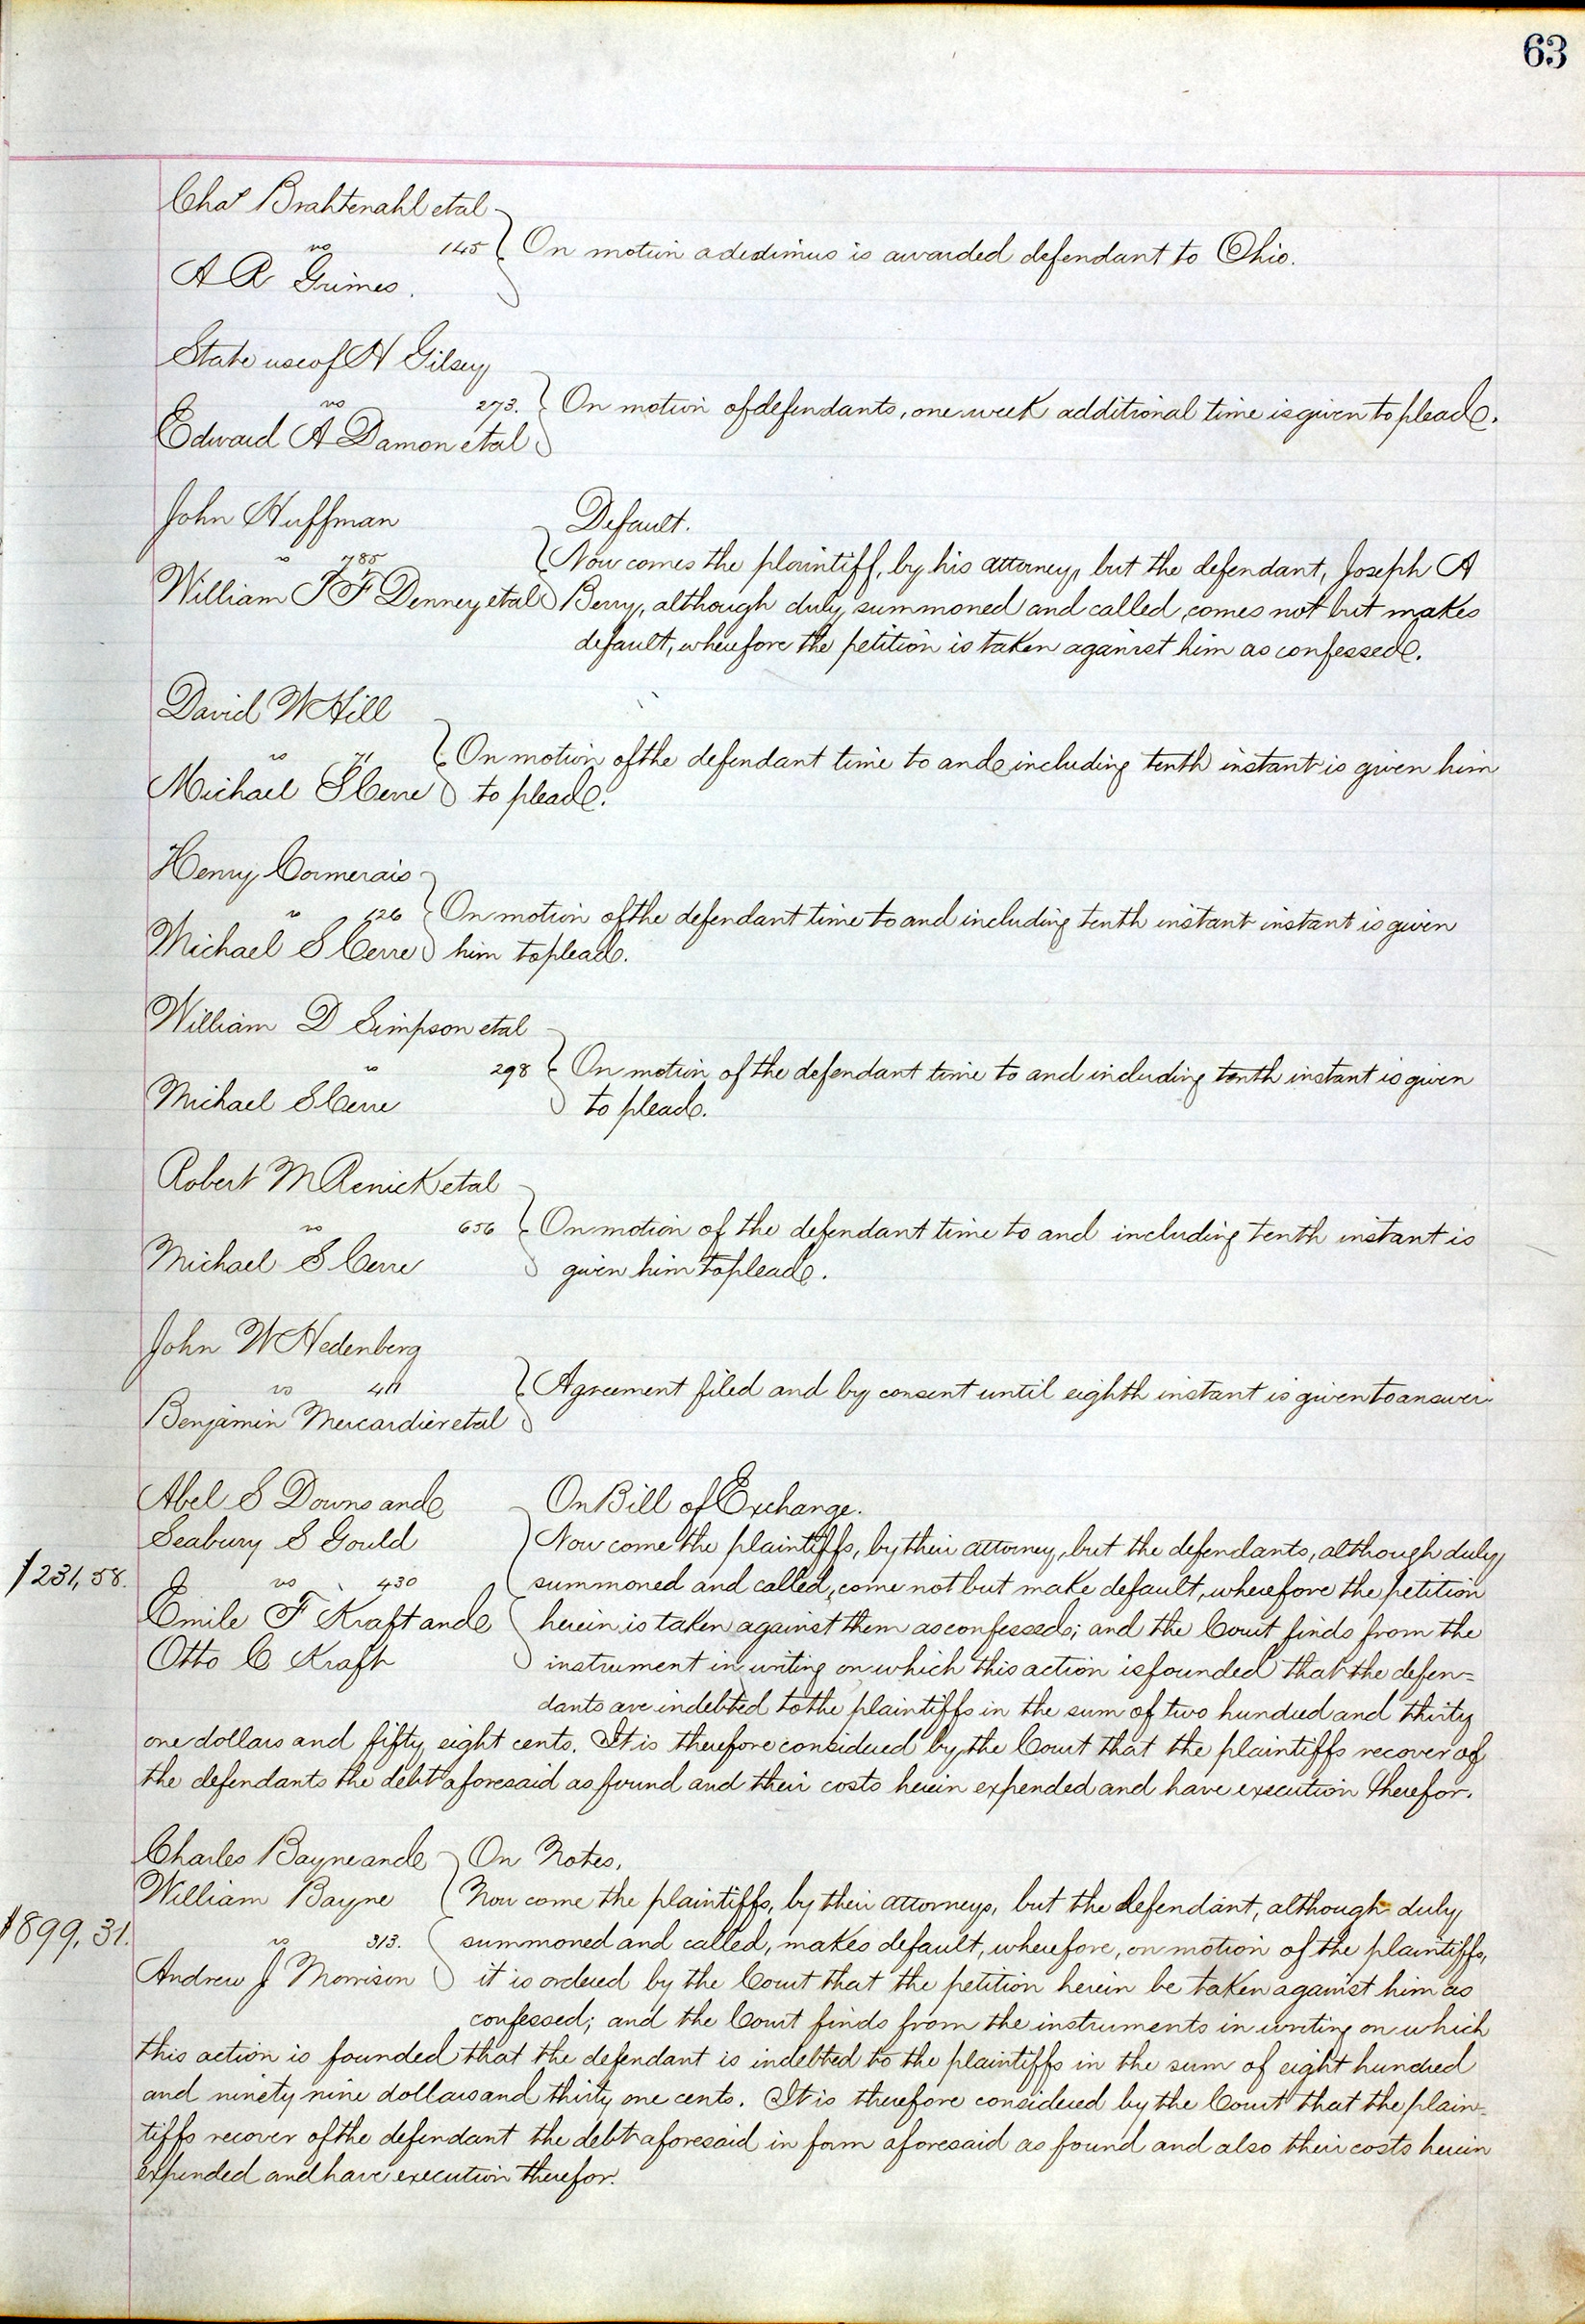 63
Chas Brahtenahl et al
vs 145
A R Grimes.
On motion a dedimus is awarded defendant to Ohio.
State use of H Gilsey
vs 273.
Edward A Damon et al
On motion of defendants, one week additional time is given to plead.
John Huffman
vs 785
William T F Denney et al
Default.
Now comes the plaintiff, by his attorney, but the defendant, Joseph A
Berry, although duly summoned and called, comes not but makes
default, wherefore the petition is taken against him as confessed.
David W Hill
vs 71
Michael S Cerre
On motion of the defendant time to and including tenth instant is given him
to plead.
Henry Cormerais
vs 126
Michael S Cerre
On motion of the defendant time to and including tenth instant instant is given
him to plead.
William D Simpson et al
vs 298
Michael S Cerre
On motion of the defendant time to and including tenth instant is given
to plead.
Robert M Renick et al
vs 656
Michael S Cerre
On motion of the defendant time to and including tenth instant is
given him to plead.
John W Hedenberg
vs 411
Benjamin Mercardier et al
Agreement filed and by consent until eighth instant is given to answer
Abel S Downs and
Seabury S Gould
vs 430
Emile F Kraft and
Otto C Kraft
$231,58.
On Bill of Exchange.
Now come the plaintiffs, by their attorney, but the defendants, although duly
summoned and called, come not but make default, wherefore the petition
herein is taken against them as confessed; and the Court finds from the
instrument in writing on which this action is founded that the defen=
dants are indebted to the plaintiffs in the sum of two hundred and thirty
one dollars and fifty eight cents. It is therefore considered by the Court that the plaintiffs recover of
the defendants the debt aforesaid as found and their costs herein expended and have execution therefor.
Charles Bayne and
William Bayne
vs 313.
Andrew J Morrison
$899,31.
On Notes.
Now come the plaintiffs, by their attorneys, but the defendant, although duly
summoned and called, makes default, wherefore, on motion of the plaintiffs,
it is ordered by the Court that the petition herein be taken against him as
confessed; and the Court finds from the instruments in writing on which
this action is founded that the defendant is indebted to the plaintiffs in the sum of eight hundred
and ninety nine dollars and thirty one cents. It is therefore considered by the Court that the plain=
tiffs recover of the defendant the debt aforesaid in form aforesaid as found and also their costs herein
expended and have execution therefor.